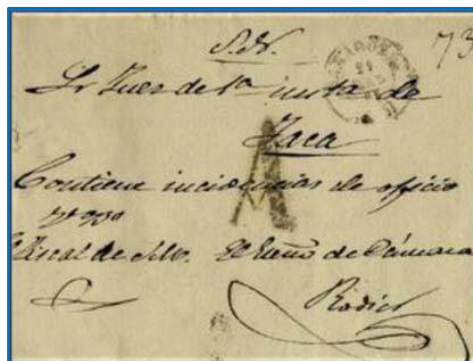 S. N. 73
Sr Juez de 1ª insta de
Jaca
A
Contiene incidencias de oficio
El Fiscal de S. M. El Esno de Cámara